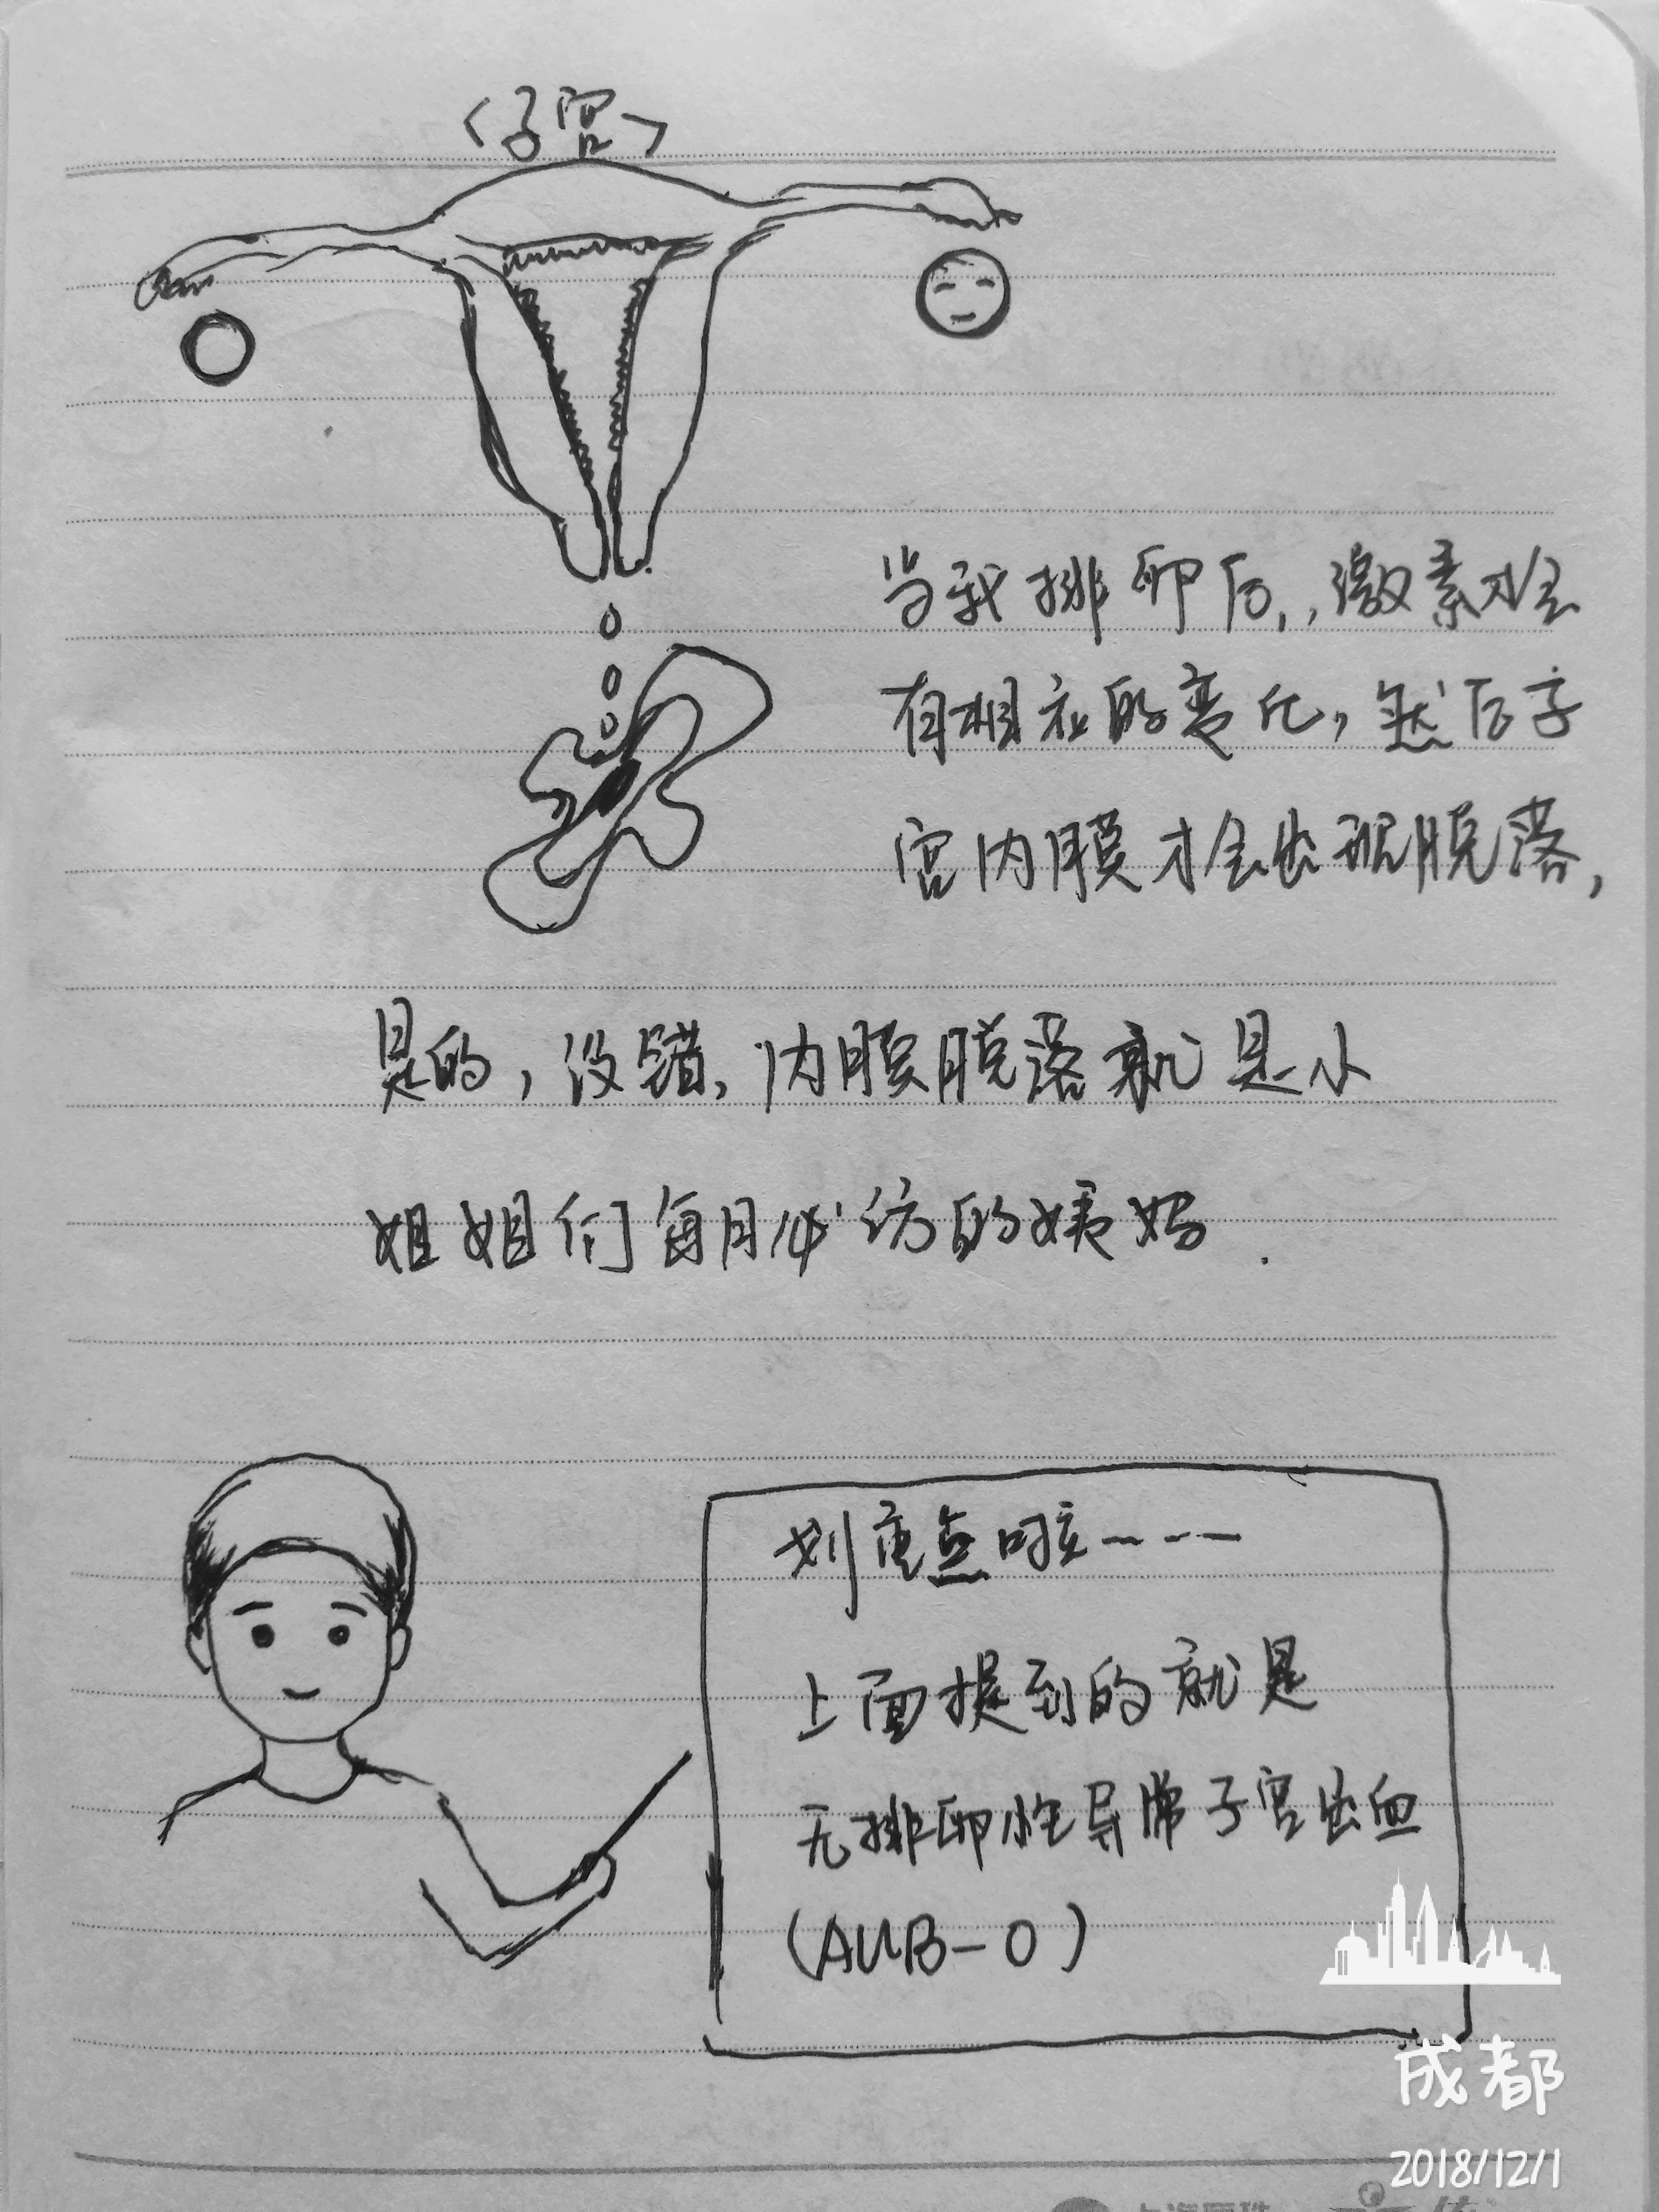 <子宫>
当我排卵后,,激素水会
有相应的变化,然后子
宫内膜才会出现脱落,
是的,没错,内膜脱落就是小
姐姐们每月必访的姨妈.
划重点啦----
上面提到的就是
无排卵性异常子宫出血
(AUB-O)
成都
2018/12/1